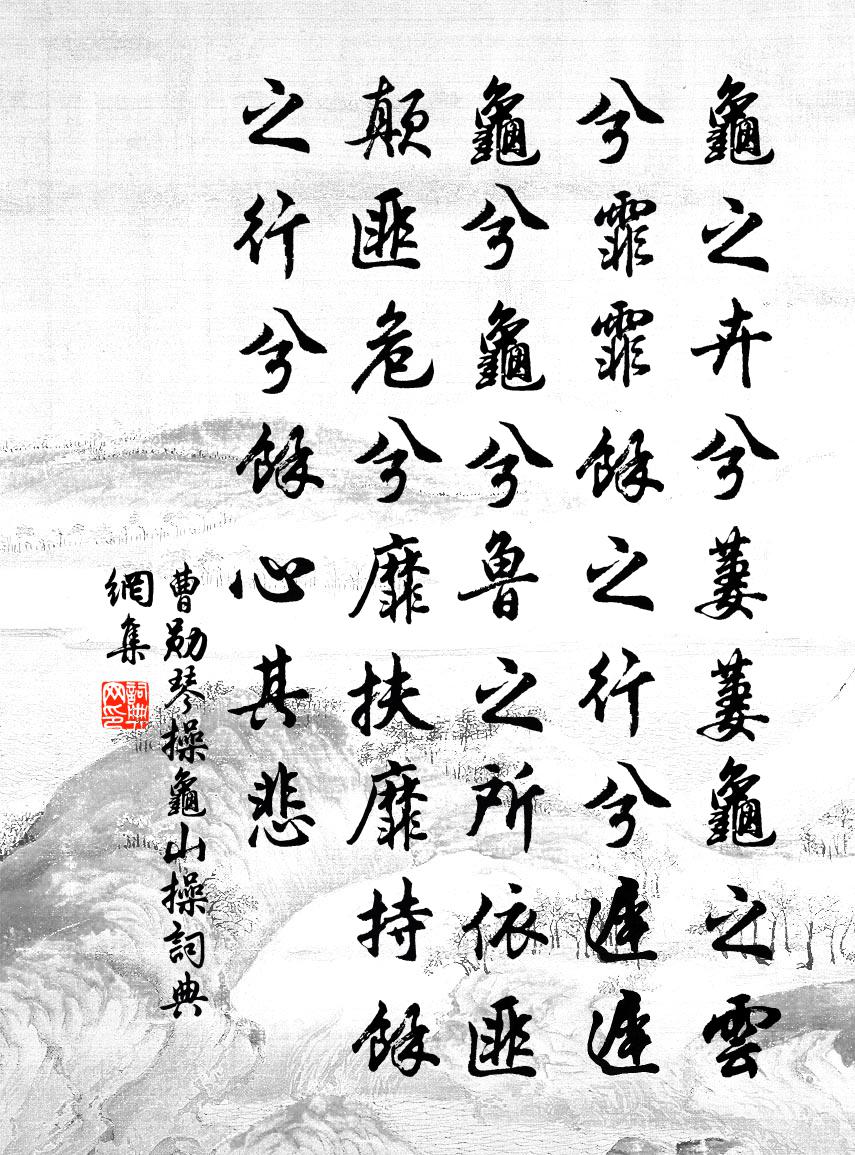 龜之卉兮萋萋龜之雲
兮霏霏餘之行兮遲遲
龜兮龜兮魯之所依匪
顛匪危兮靡扶靡持餘
之行兮餘心其悲
曹勛琴操龜山操詞典
網集
詞典網印